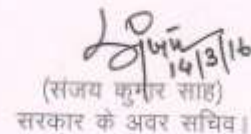 14/3/16
(संजय कुमार साह)
सरकार के अवर सचिव।